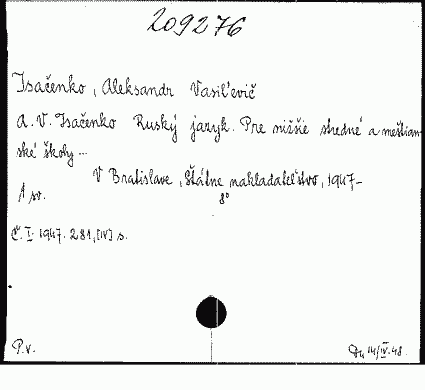 209276
Isačenko, Aleksandr Vasiľevič
A. V. Isačenko Ruský jazyk. Pre nižšie stredné a meštian-
ské školy ...
V Bratislave, Štátne nakladateľstvo, 1947-
1 sv. 8°
Č. I. 1947. 281, [IV] s.
P.v. Du 14/IV.48